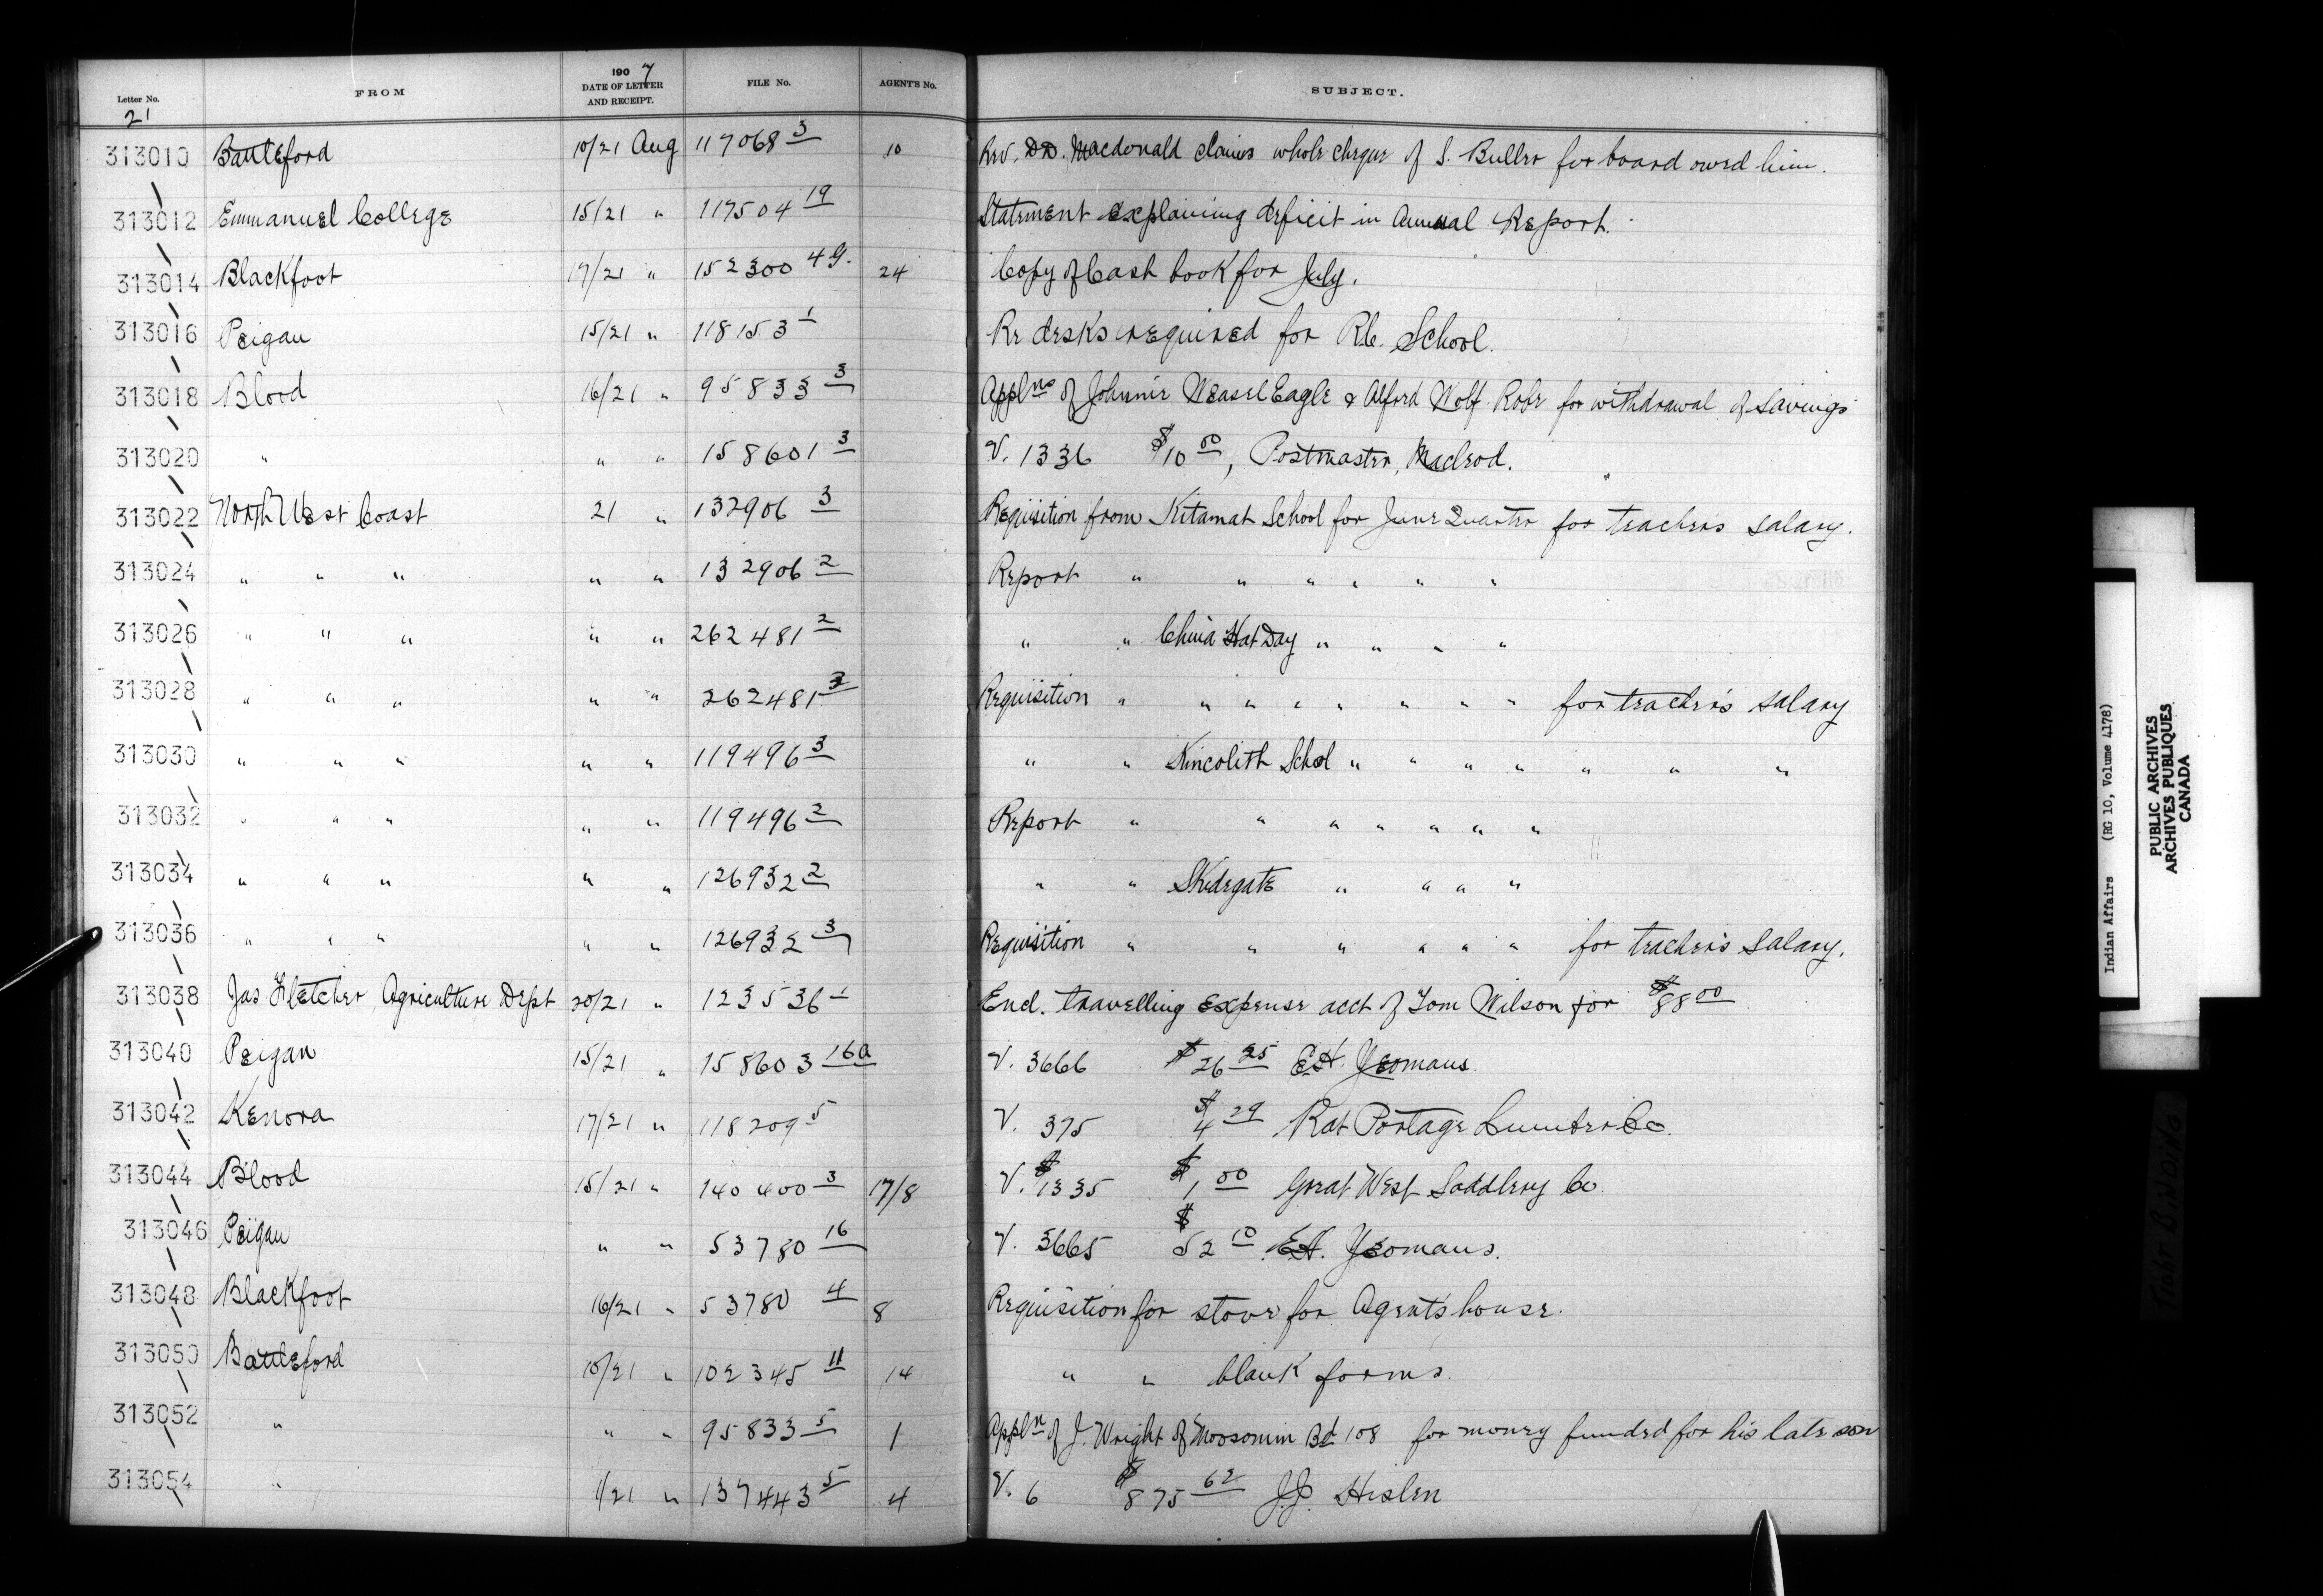 Letter No. FROM 1907 DATE OF LETTER AND RECEIPT. FILE No. AGENT'S No. SUBJECT.
21
313010 Battleford 10/21 Aug 117068 3 10 Rev. D.D. Macdonald claims whole cheque of S. Buller for board owed him.
313012 Emmanuel College 15/21 " 117504 19 Statement explaining deficit in Annual Report.
313014 Blackfoot 17/21 " 152300 49. 24 Copy of Cash book for July.
313016 Peigan 15/21 " 118153 1 Re desks required for R.C. School.
313018 Blood 16/21 " 95833 3 Applns of Johnnie Weasel Eagle & Alford Wolf Robe for withdrawal of savings
313020 " " " 158601 3 V. 1336 $10 00, Postmaster, Macleod.
313022 North West Coast 21 " 132906 3 Requisition from Kitamat School for June Quarter for teachers salary.
313024 " " " " " 132906 2 Report " " " " " "
313026 " " " " " 262481 2 " " China Hat Day " " " "
313028 " " " " " 262481 3 Requisition " " " " " " " " for teacher's salary
313030 " " " " " 119496 3 " " Kincolith School " " " " " " "
313032 " " " " " 119496 2 Report " " " " " " "
313034 " " " " " 126932 2 " " Skidegate " " " "
313036 " " " " " 126932 3 Requisition " " " " " " for teacher's salary.
313038 Jas Fletcher, Agriculture Dept 20/21 " 123536 1 Encl. travelling expense acct of Tom Wilson for $88 00
313040 Peigan 15/21 " 158603 16a V. 3666 $26 25 E.H. Yeomans.
313042 Kenora 17/21 " 118209 5 V. 375 $4 29 Rat Portage Lumber Co.
313044 Blood 15/21 " 140400 3 17/8 V. $1335 $1 00 Great West Saddlery Co
313046 Peigan " " 53780 16 V. 3665 $52 10 E.H. Yeomans.
313048 Blackfoot 16/21 " 53780 4 8 Requisition for stove for Agents house.
313050 Battleford 10/21 " 102345 11 14 " " blank forms.
313052 " " " 95833 5 1 Appln of J. Wright of Moosomin Bd 108 for money funded for his late son
313054 " 1/21 " 137443 5 4 V. 6 $875 62 J.J.
Indian Affairs (RG 10, Volume 4178)
PUBLIC ARCHIVES
ARCHIVES PUBLIQUES
CANADA
TIGHT BINDING